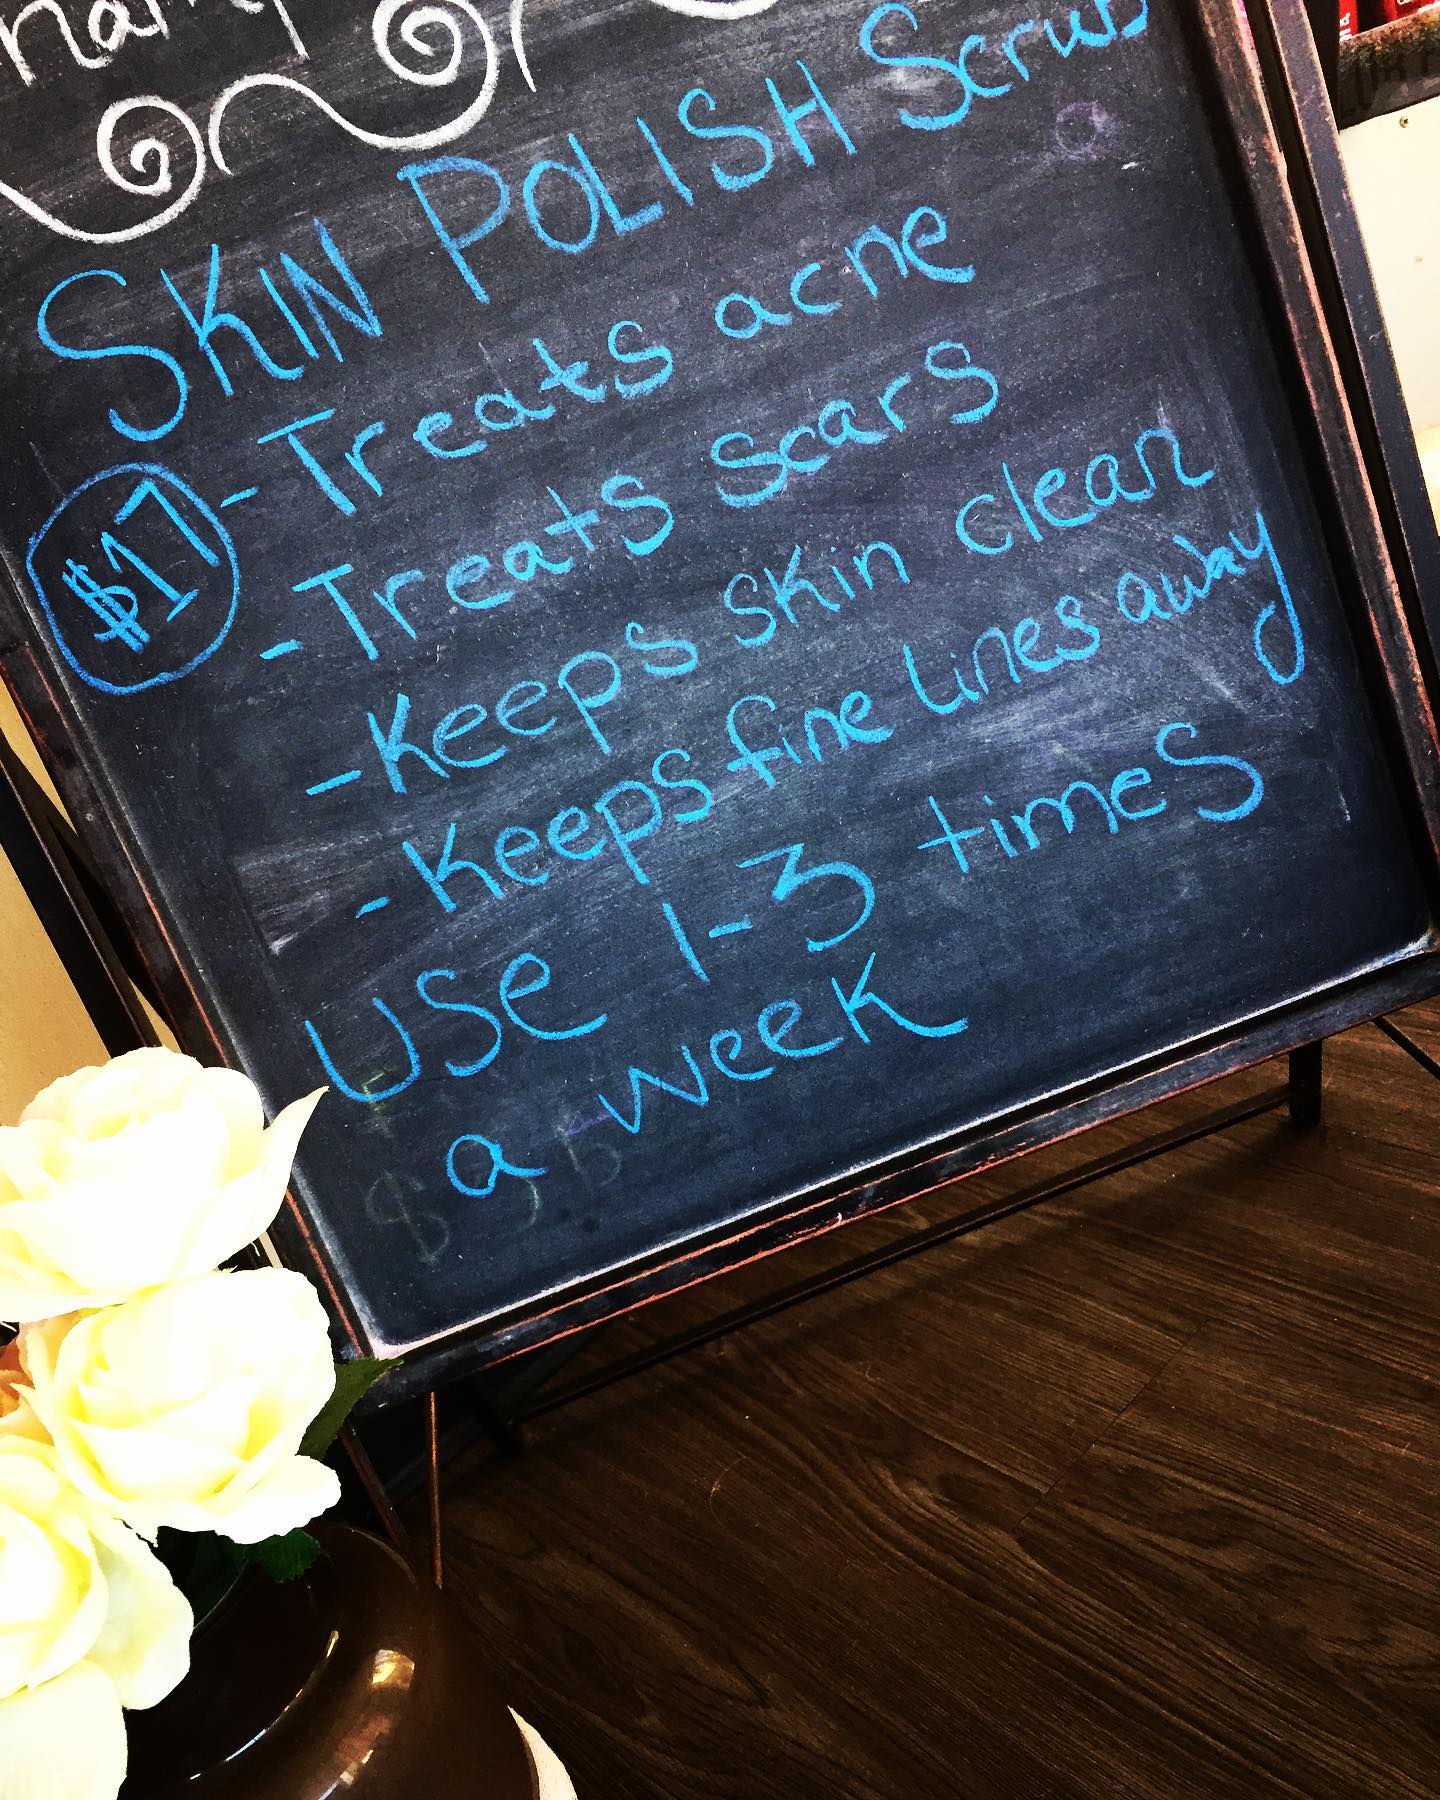 SKIN POLISH Scrub
$17
- Treats acne
- Treats scars
- Keeps skin clean
- Keeps fine lines away
USE 1-3 times
a week